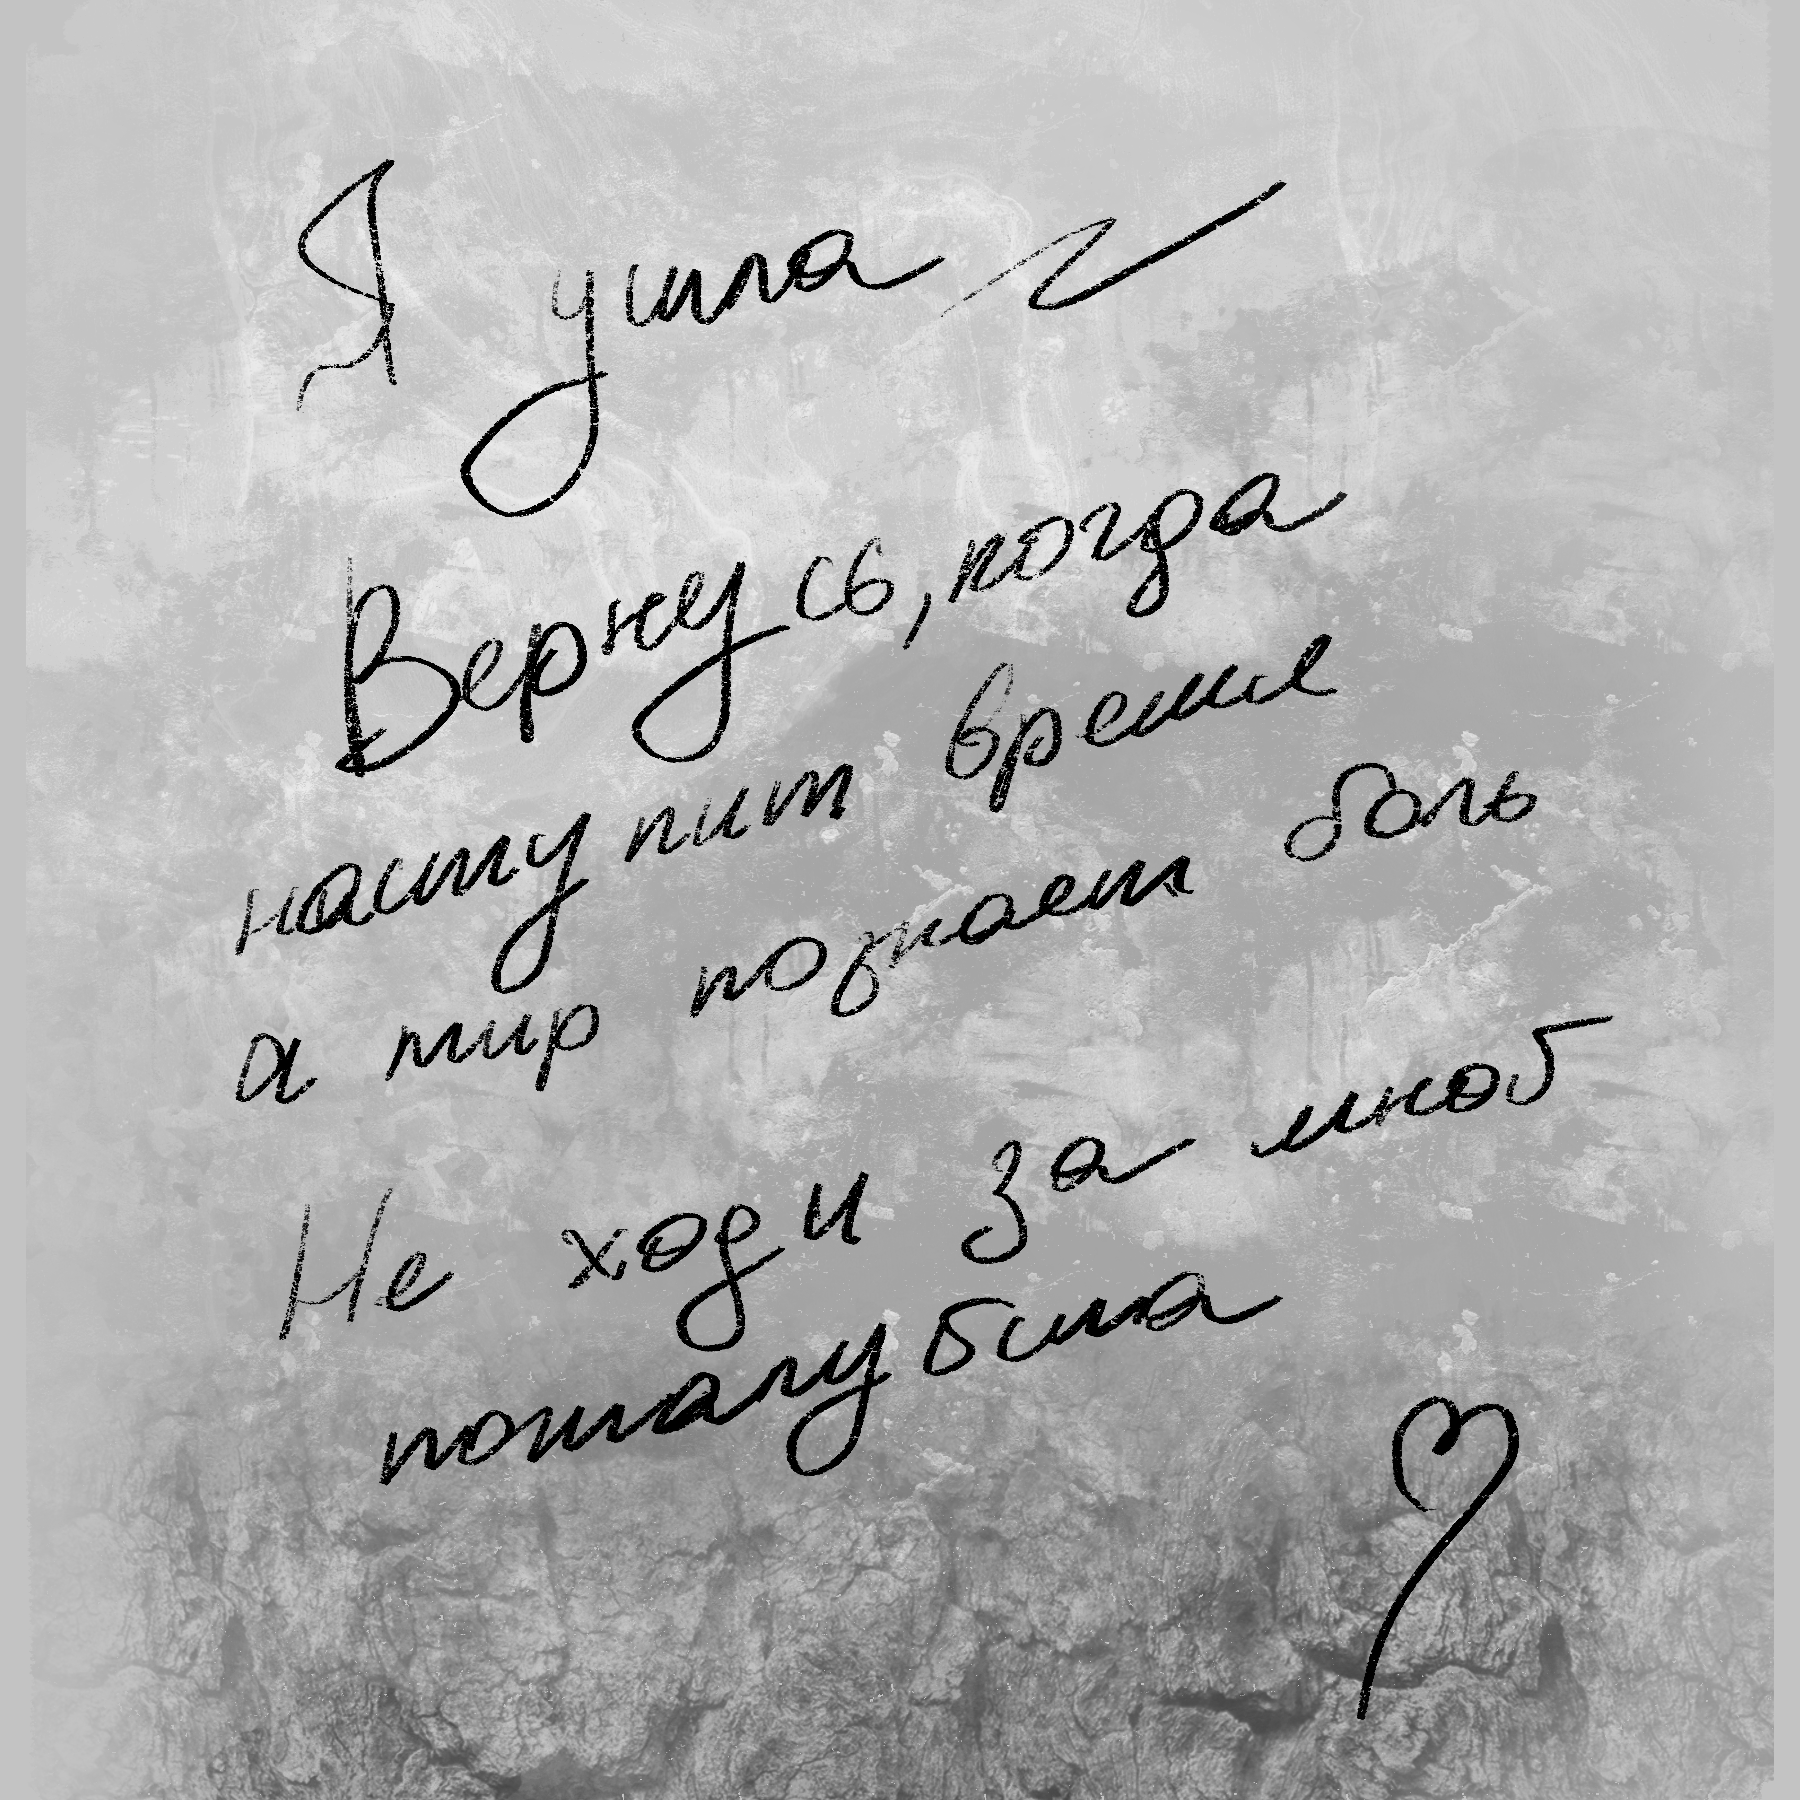 Я ушла
Вернусь, когда
наступит время
а мир познает боль
Не ходи за мной